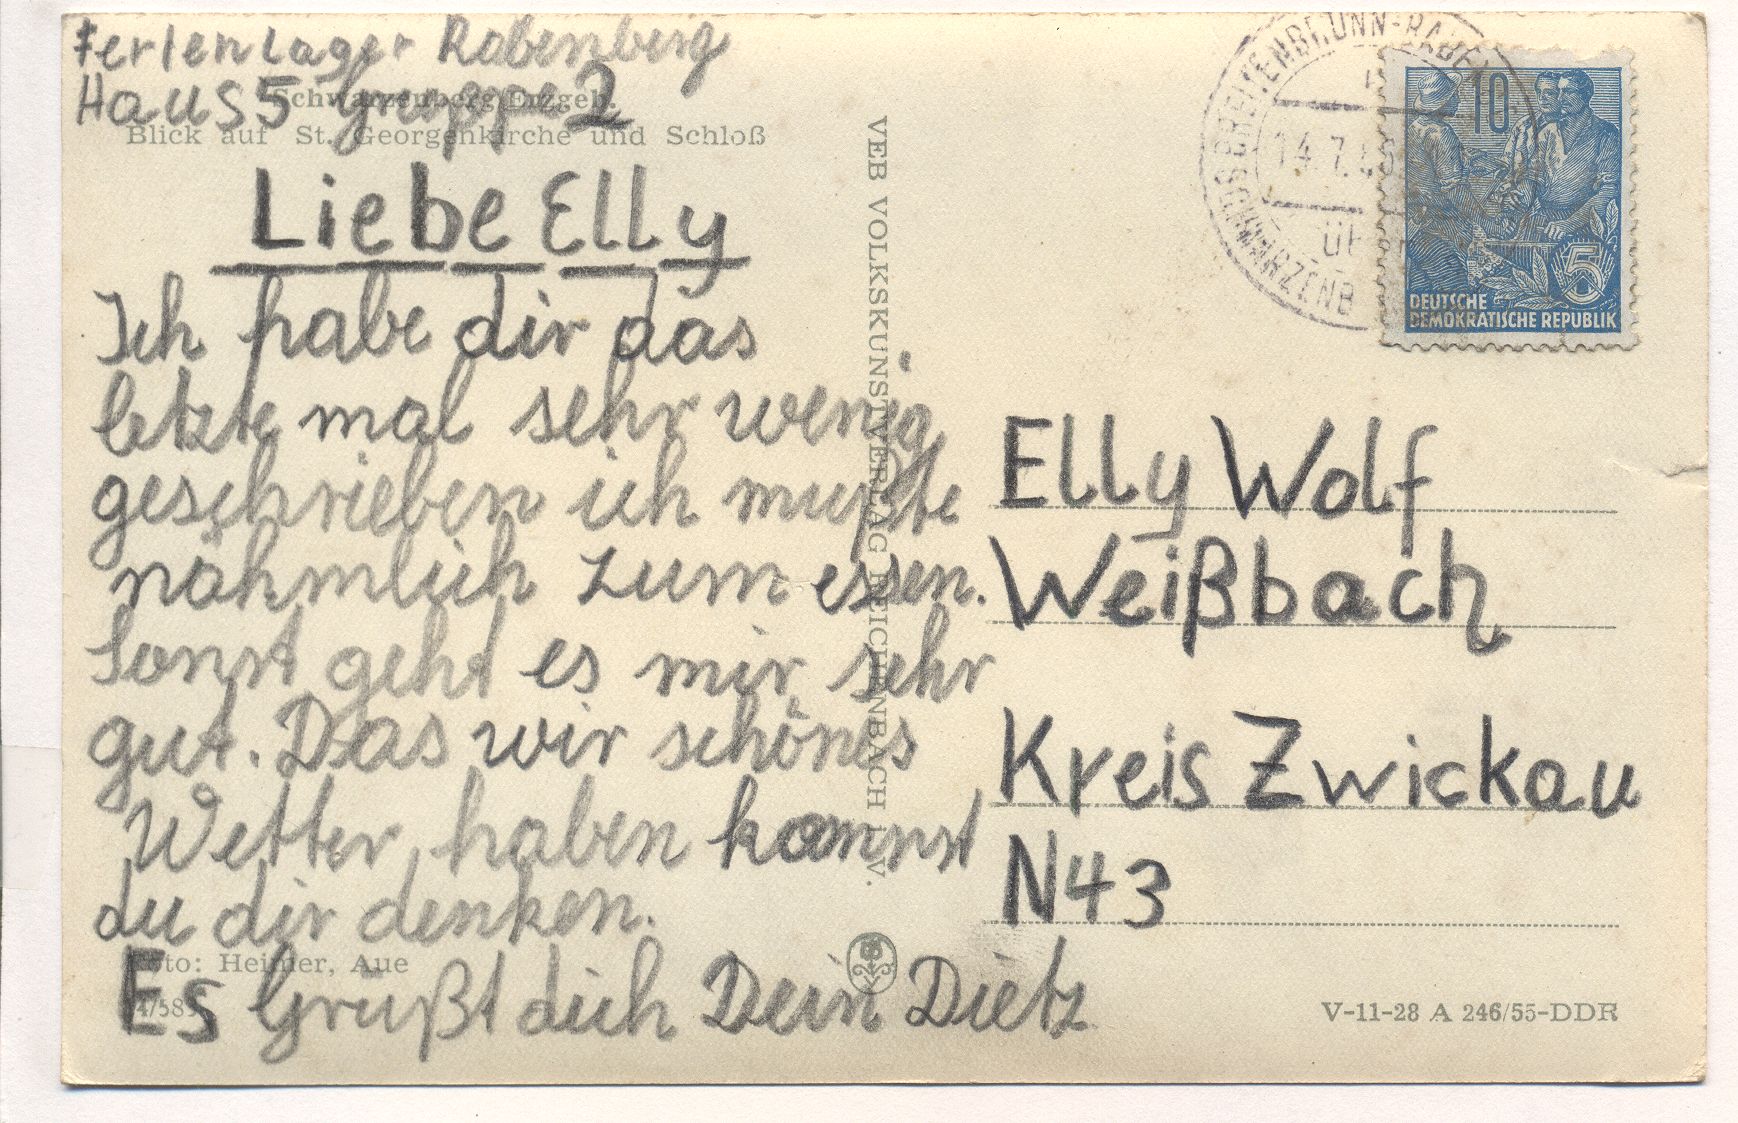 Ferienlager Rabenberg
Haus 5 Gruppe 2
Schwarzenberg/Erzgeb.
Blick auf St. Georgenkirche und Schloß
Liebe Elly
Ich habe dir das
letzte mal sehr wenig
geschrieben ich mußte
nähmlich zum essen.
Sonst geht es mir sehr
gut. Das wir schönes
Wetter haben kannst
du dir denken.
Es Grüßt dich Dein Dietz
Foto: Heimer, Aue
VEB VOLKSKUNSTVERLAG REICHENBACH I. V.
10
5
DEUTSCHE
DEMOKRATISCHE REPUBLIK
14.7.
Elly Wolf
Weißbach
Kreis Zwickau
N43
V-11-28 A 246/55-DDR